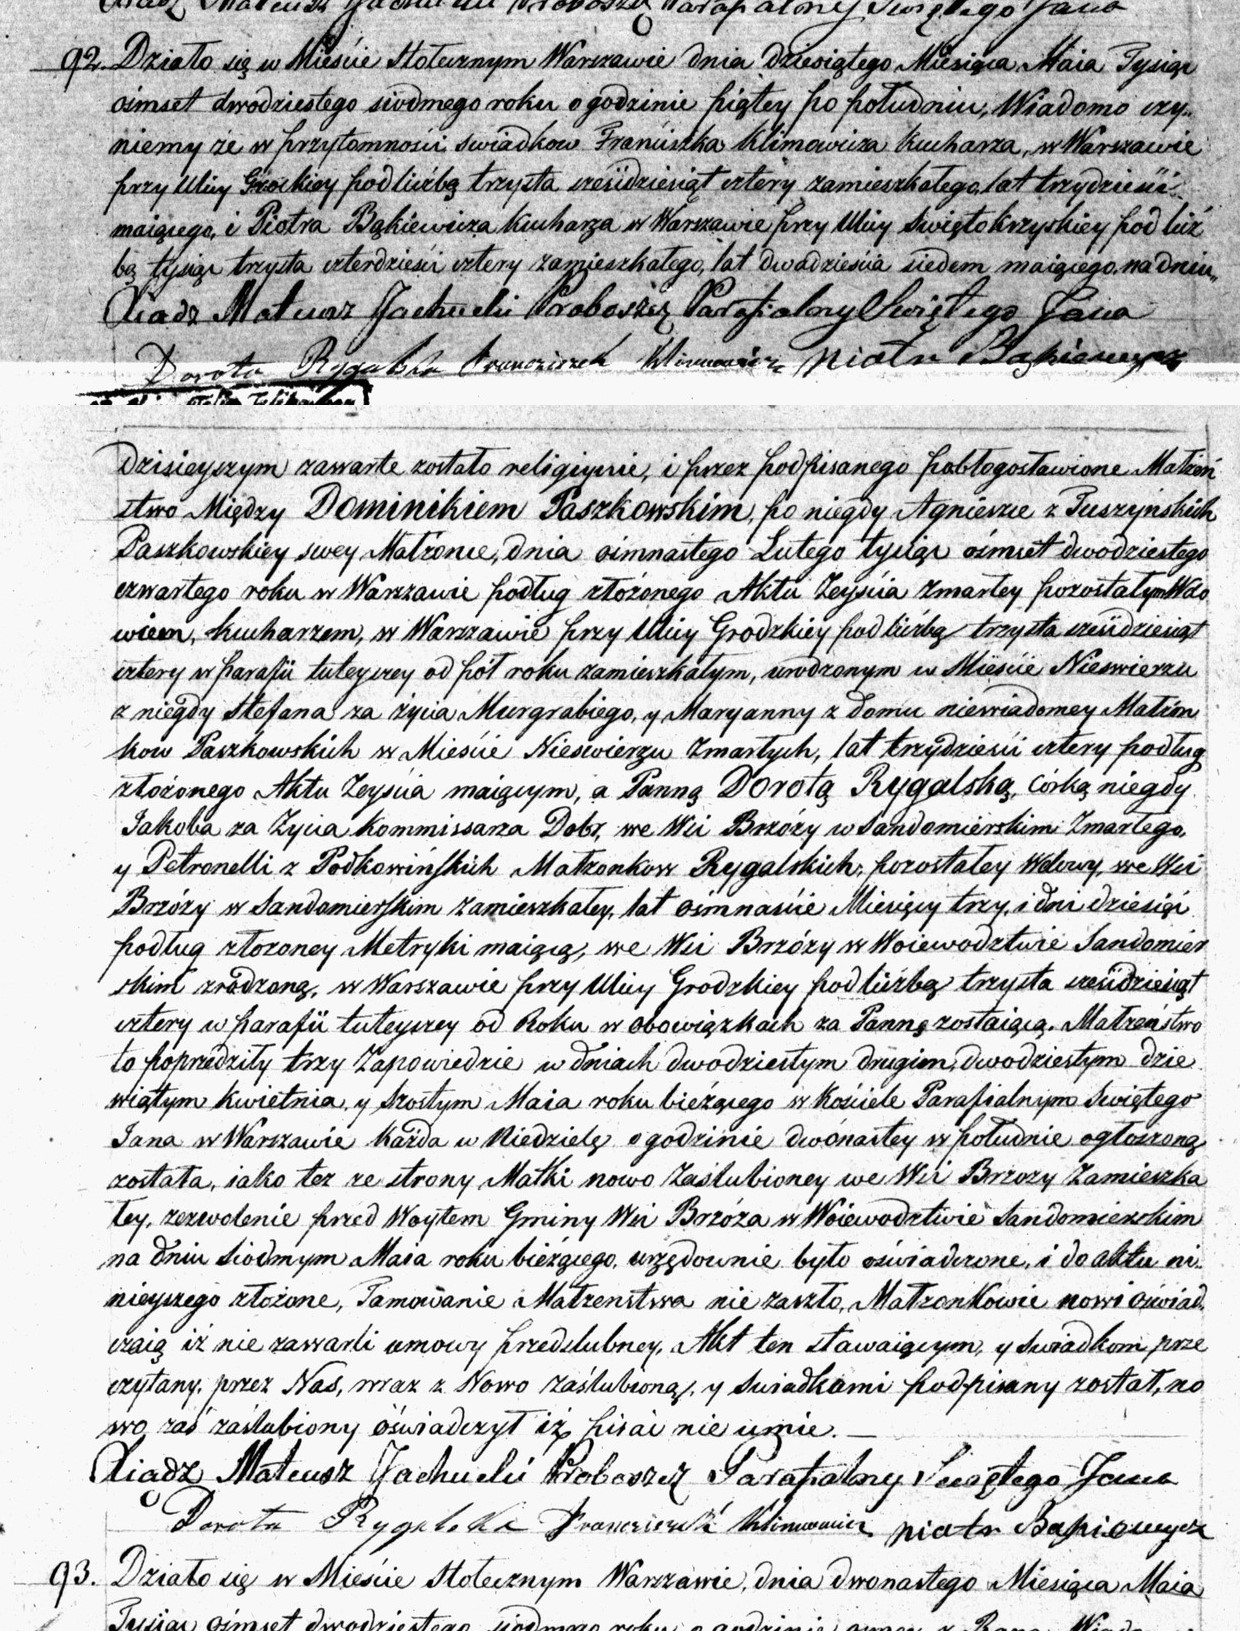 Xiądz Mateusz Jachucki Proboszcz Parafialny Świętego Jana
92. Działo się w Mieście Stołecznym Warszawie dnia dziesiątego Miesiąca Maia Tysiąc
ośmset dwódziestego siódmego roku o godzinie piątey po południu, Wiadomo czy„
niemy że w przytomności swiadkow Franciszka Klimowicza Kucharza, w Warszawie
przy Ulicy Grockiey pod liczbą trzysta sześćdziesiąt cztery zamieszkałego, lat trzydzieści
maiącego, i Piotra Bąkiewicza Kucharza w Warszawie przy Ulicy Swiętokrzyskiey pod licz
bą tysiąc trzysta czterdzieści cztery zamieszkałego, lat dwadzieścia siedem maiącego, na dniu„
Xiądz Mateusz Jachucki Proboszcz Parafialny Świętego Jana
Dorota Rygalska Franciszek Klimowicz piotr Bąkiewycz
Dzisieyszym zawarte zostało religiynie, i przez podpisanego pobłogosławione Małżeń
stwo Między Dominikiem Paszkowskim, po niegdy Agnieszce z Tuszyńskich
Paszkowskiey swey Małżonce, dnia ośmnastego Lutego tysiąc ośmset dwódziestego
czwartego roku w Warszawie podług złożonego Aktu Zeyścia zmarłey pozostałym Wdo
wcem, Kucharzem, w Warszawie przy Ulicy Grodzkiey pod liczbą trzysta sześćdziesiąt
cztery w parafii tuteyszey od pół roku zamieszkałym, urodzonym w Mieście Nieswierzu
z niegdy Stefana za życia Murgrabiego, y Maryanny z domu niewiadomey Małżon
kow Paszkowskich w Mieście Nieswierzu zmarłych, lat trzydzieści cztery podług
złożonego Aktu Zeyścia maiącym, a Panną Dorotą Rygalską, córką niegdy
Jakóba za Życia Kommissarza Dóbr, we Wsi Brzózy w Sandomierskim Zmarłego,
y Petronelli z Podkowińskich Małzonkow Rygalskich, pozostałey Wdowy, we Wsi
Brzózy w Sandomierskim zamieszkałey, lat ośmnaście Miesięcy trzy, i dni dziesięć
podług złożoney Metryki maiącą, we Wsi Brzózy w Woiewodztwie Sandomier
skim zrodzoną, w Warszawie przy Ulicy Grodzkiey pod liczbą trzysta sześćdziesiąt
cztery w parafii tuteyszey od Roku w obowiązkach za Pannę zostaiącą. Małżeństwo
to poprzedziły trzy Zapowiedzie w dniach dwódziestym drugim, dwódziestym dzie
wiątym kwietnia, y szóstym Maia roku bieżącego w Kościele Parafialnym Swiętego
Jana w Warszawie każda w Niedzielę o godzinie dwónastey w południe ogłoszoną
została, iako też ze strony Matki nowo Zaślubioney we Wsi Brzozy Zamieszka
łey, zezwolenie przed Woytem Gminy Wsi Brzóza w Woiewodztwie Sandomierskim
na dniu siódmym Maia roku bieżącego, urzędownie było oświadczone, i do aktu ni
nieyszego złożone, Tamowanie Małzenstwa nie zaszło, Małżonkowie nowi oświad„
czaią iż nie zawarli umowy przedslubney, Akt ten stawaiącym, y świadkom prze
czytany, przez Nas, wraz z Nowo zaślubioną, y świadkami podpisany został, no
wo zaś zaślubiony oświadczył iż pisać nie umie. —
Xiądz Mateusz Jachucki Proboszcz Parafialny Świętego Jana
Dorota Rygalska Franciszek Klimowicz piotr Bąkiewycz
93. Działo się w Mieście Stołecznym Warszawie, dnia dwonastego Miesiąca Maia
Tysiąc ośmset dwódziestego siódmego roku o godzinie